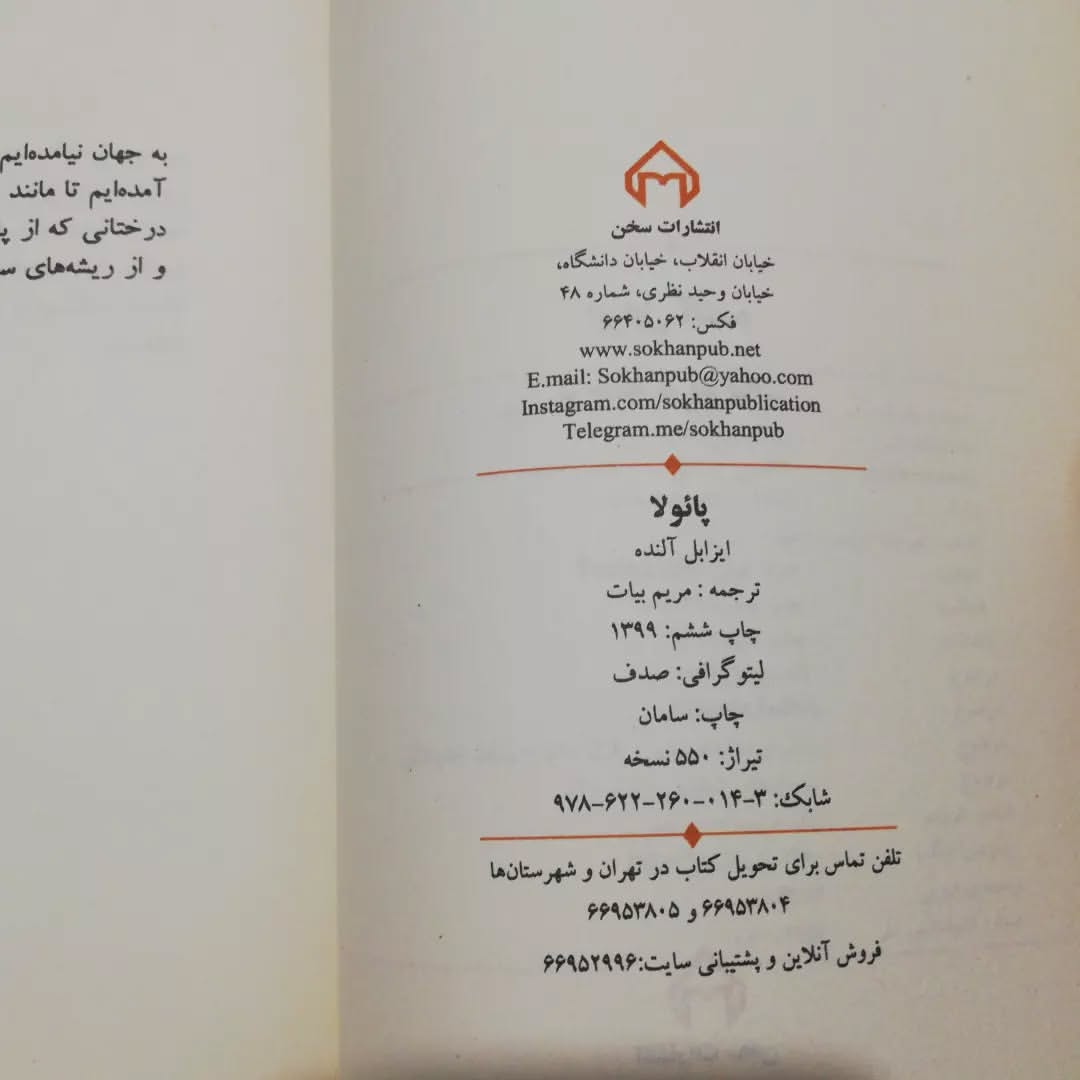 انتشارات سخن
خیابان انقلاب، خیابان دانشگاه،
خیابان وحید نظری، شماره ۴۸
فکس: ۶۶۴۰۵۰۶۲
www.sokhanpub.net
E.mail: Sokhanpub@yahoo.com
Instagram.com/sokhanpublication
Telegram.me/sokhanpub
پائولا
ایزابل آلنده
ترجمه : مریم بیات
چاپ ششم: ۱۳۹۹
لیتوگرافی: صدف
چاپ: سامان
تیراژ: ۵۵۰ نسخه
شابک: ۳-۰۱۴-۲۶۰-۶۲۲-۹۷۸
تلفن تماس برای تحویل کتاب در تهران و شهرستان‌ها
۶۶۹۵۳۸۰۴ و ۶۶۹۵۳۸۰۵
فروش آنلاین و پشتیبانی سایت:۶۶۹۵۲۹۹۶
به جهان نیامده‌ایم
آمده‌ایم تا مانند
درختانی که از
و از ریشه‌های